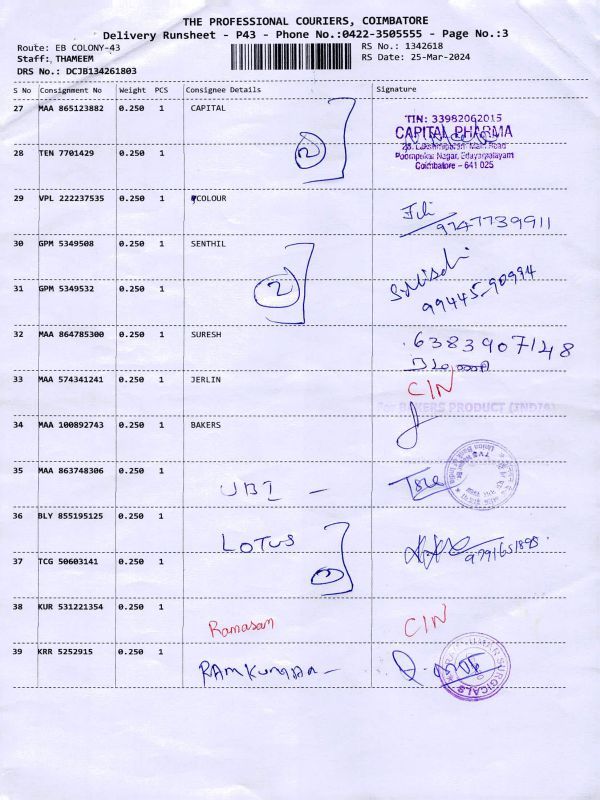 THE PROFESSIONAL COURIERS, COIMBATORE
Delivery Runsheet - P43 - Phone No.:0422-3505555 - Page No.:3
Route: EB COLONY-43
RS No.: 1342618
Staff: THAMEEM
RS Date: 25-Mar-2024
DRS No.: DCJB134261803
S No Consignment No Weight PCS Consignee Details Signature
27 MAA 865123882 0.250 1 CAPITAL
TIN: 33982062015
CAPITAL PHARMA
Coimbatore - 641 025
28 TEN 7701429 0.250 1
2
29 VPL 222237535 0.250 1 COLOUR
9747739911
30 GPM 5349508 0.250 1 SENTHIL
31 GPM 5349532 0.250 1
2
99445-90994
32 MAA 864785300 0.250 1 SURESH
6383907148
33 MAA 574341241 0.250 1 JERLIN
CIN
For BAKERS PRODUCT (INDIA)
34 MAA 100892743 0.250 1 BAKERS
35 MAA 863748306 0.250 1
UBI -
36 BLY 855195125 0.250 1
LOTUS
37 TCG 50603141 0.250 1
9791651895
38 KUR 531221354 0.250 1
Ramasam
CIN
39 KRR 5252915 0.250 1
RAMKUMAR -
SURGICALS